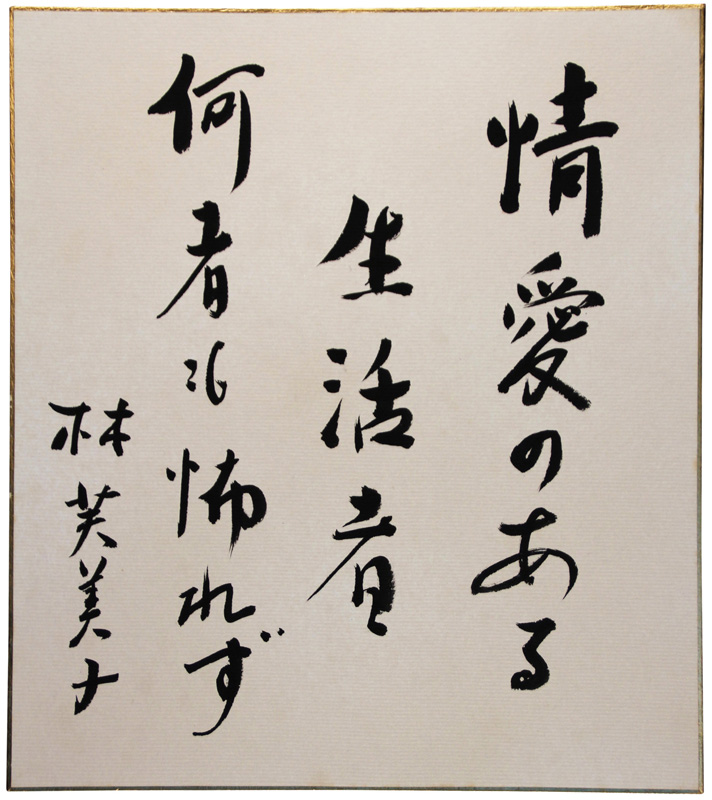 情愛のある
生活者
何者にも怖れず
林芙美子